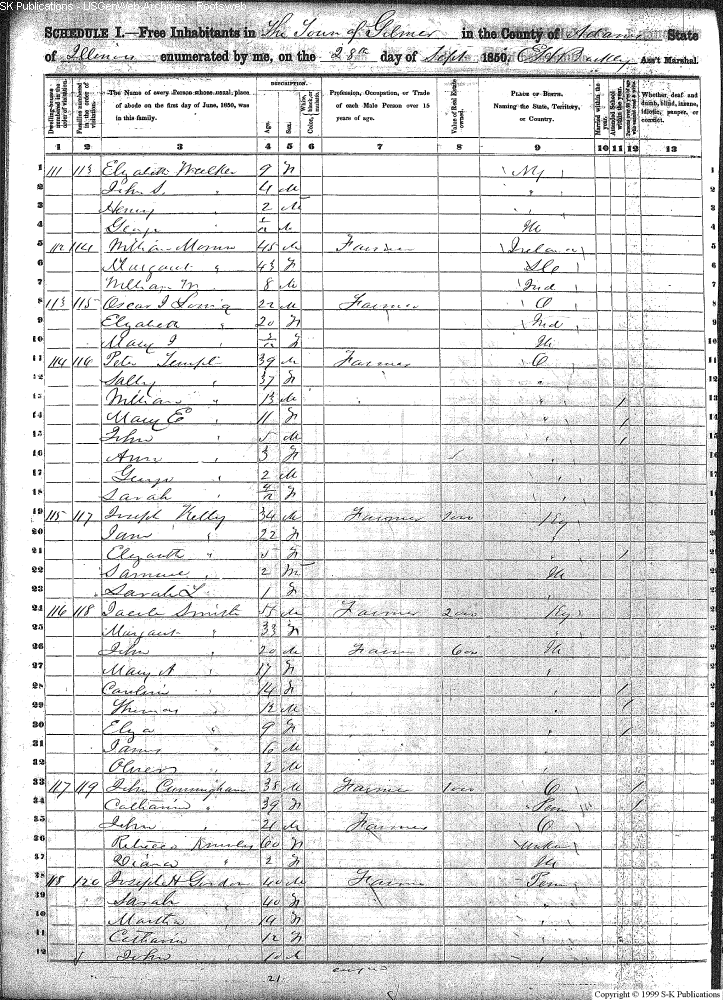 SK Publications - USGenWeb Archives - Rootsweb
SCHEDULE I.—Free Inhabitants in The Town of Gilmer in the County of Adams State
of Illinois enumerated by me, on the 28th day of Sept 1850. Ass't Marshal.
Dwelling-houses numbered in the order of visitation.
Families numbered in the order of visitation.
The Name of every Person whose usual place of abode on the first day of June, 1850, was in this family.
DESCRIPTION.
Age.
Sex.
Color, White, black, or mulatto.
Profession, Occupation, or Trade of each Male Person over 15 years of age.
Value of Real Estate owned.
PLACE OF BIRTH. Naming the State, Territory, or Country.
Married within the year.
Attended School within the year.
Persons over 20 y'rs of age who cannot read & write.
Whether deaf and dumb, blind, insane, idiotic, pauper, or convict.
1 2 3 4 5 6 7 8 9 10 11 12 13
1 111 113 Elizabeth Walker 9 F NY 1
2 John S. " 4 M " 2
3 Henry " 2 M " 3
4 George " M Ill 4
5 112 114 William 45 M Farmer Ireland 5
6 Margaret " 43 F Do 6
7 William M " 8 M Ind 7
8 113 115 Oscar 22 M Farmer O 8
9 Elizabeth " 20 F Ind 9
10 Mary J " F Ill 10
11 114 116 Peter Templ 39 M Farmer O 11
12 Sally " 37 F " 12
13 William " 13 M " 1 13
14 Mary E " 11 F " 1 14
15 John " 5 M " 1 15
16 Ann " 3 F " 16
17 George " 2 M " 17
18 Sarah " 4/12 F " 18
19 115 117 Joseph Kelly 34 M Farmer 1000 Ky 19
20 Jane " 22 F " 20
21 Elizabeth " 5 F " 1 21
22 Samuel " 2 M Ill 22
23 Sarah L " 1 F " 23
24 116 118 Jacob Smith 51 M Farmer 2000 Ky 24
25 Margaret " 33 F " 25
26 John " 20 M Farmer 600 Ill 26
27 Mary A " 17 F " 27
28 Caroline " 14 F " 1 28
29 Thomas " 12 M " 1 29
30 Eliza " 9 F " 1 30
31 James " 6 M " 31
32 Oliver " 2 M " 32
33 117 119 John Cunningham 38 M Farmer 1000 O 1 33
34 Catharine " 39 F Penn 1 34
35 John " 21 M Farmer O 35
36 Rebecca 60 F 36
37 Diana " 2 F Ill 37
38 118 120 Joseph H Gordon 40 M Farmer Penn 38
39 Sarah " 40 F " 39
40 Martha " 19 F " 40
41 Catharine " 12 F " 41
42 John " 10 M " 42
21
Copyright © 1999 S-K Publications